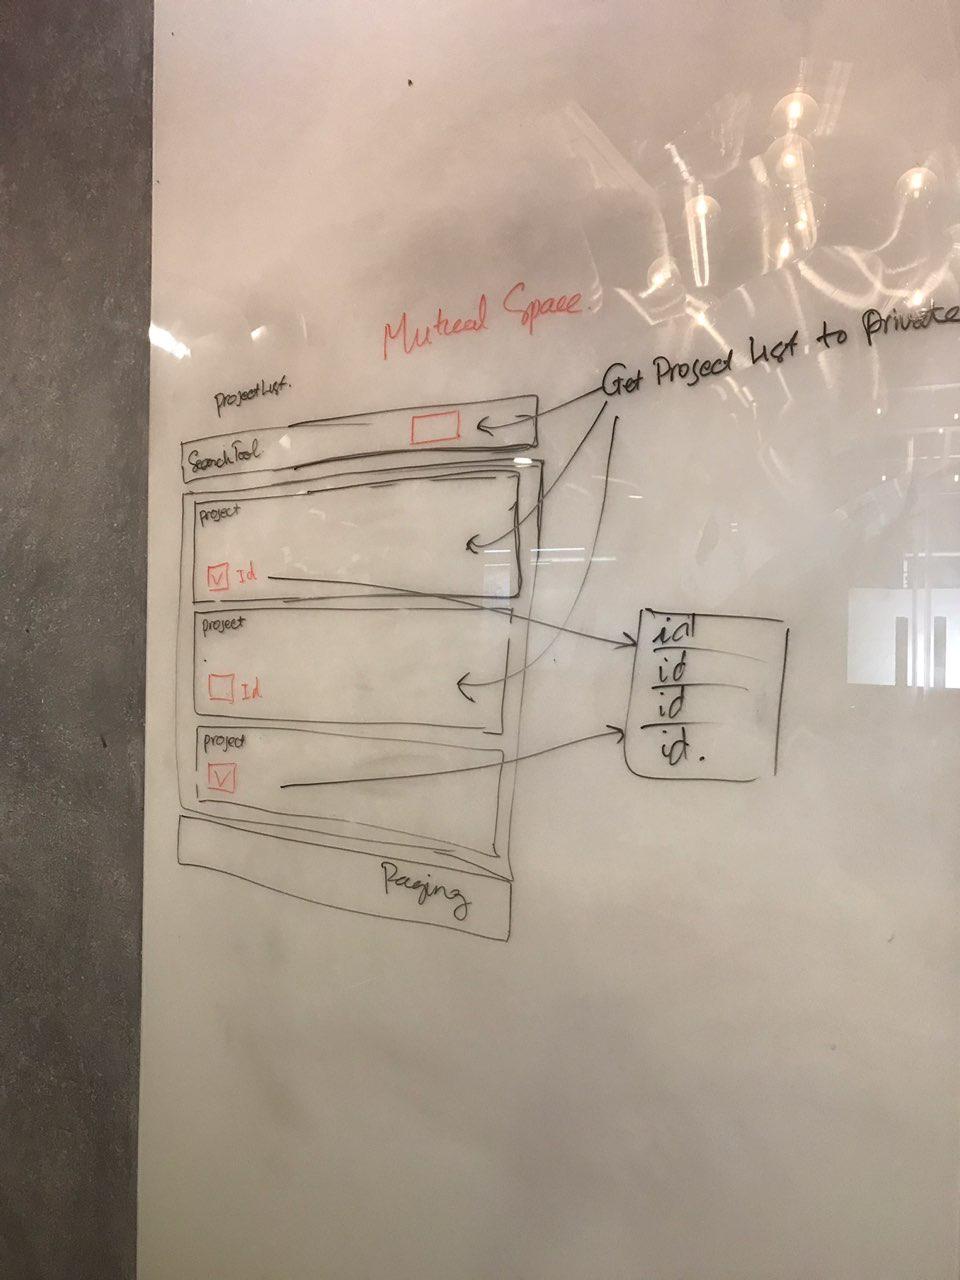 Mutual Space.
Get Project List to private
Project List.
Search Tool
project
Id
project
Id
project
Paging
id
id
id
id.